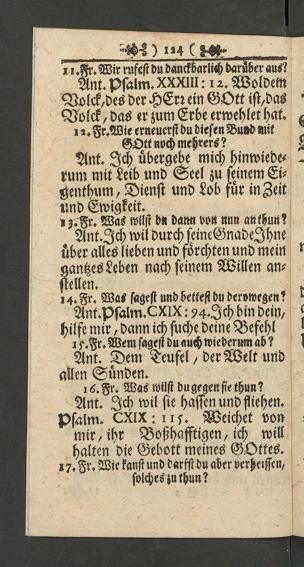 ) 124 (
11. Fr. Wir rufest du danckbarlich darüber aus?
Ant. Psalm. XXXIII: 12. Wol dem
Volck, des der HErz ein GOtt ist, das
Volck, das er zum Erbe erwehlet hat.
12. Fr. Wie erneuerst du diesen Bund mit
GOtt noch mehrers?
Ant. Ich übergebe mich hinwiede-
rum mit Leib und Seel zu seinem Ei-
genthum, Dienst und Lob für in Zeit
und Ewigkeit.
13. Fr. Was wilst du dann von nun an thun?
Ant. Ich wil durch seine Gnade Ihne
über alles lieben und förchten und mein
gantzes Leben nach seinem Willen an-
stellen.
14. Fr. Was sagest und bettest du derowegen?
Ant. Psalm. CXIX: 94. Ich bin dein,
hilfe mir, dann ich suche deine Befehl
15. Fr. Wem sagest du auch wiederum ab?
Ant. Dem Teufel, der Welt und
allen Sünden.
16. Fr. Was wilst du gegen sie thun?
Ant. Ich wil sie hassen und fliehen.
Psalm. CXIX: 115. Weichet von
mir, ihr Boßhafftigen, ich will
halten die Gebott meines GOttes.
17. Fr. Wie kanst und darfst du aber verheissen,
solches zu thun?